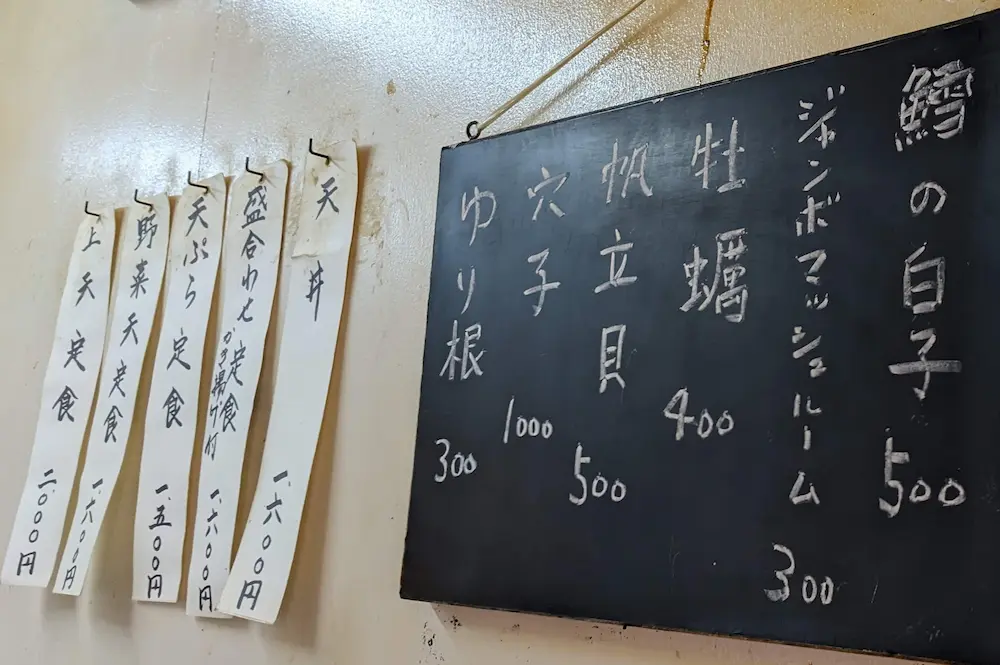 鱈の白子 500
ジャンボマッシュルーム 300
牡蠣 400
帆立貝 500
穴子 1000
ゆり根 300
天丼 一、六〇〇円
盛合わせ定食 一、六〇〇円
かき揚げ付
天ぷら定食 一、五〇〇円
野菜天定食 一、六〇〇円
上天定食 二、〇〇〇円